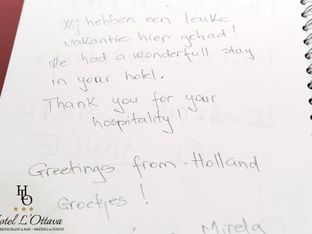 Wij hebben een leuke
vakantie hier gehad!
We had a wonderfull stay
in your hotel.
Thank you for your
hospitality!
Greetings from Holland
Groetjes!
Mirela
HLO
Hotel L'Ottava